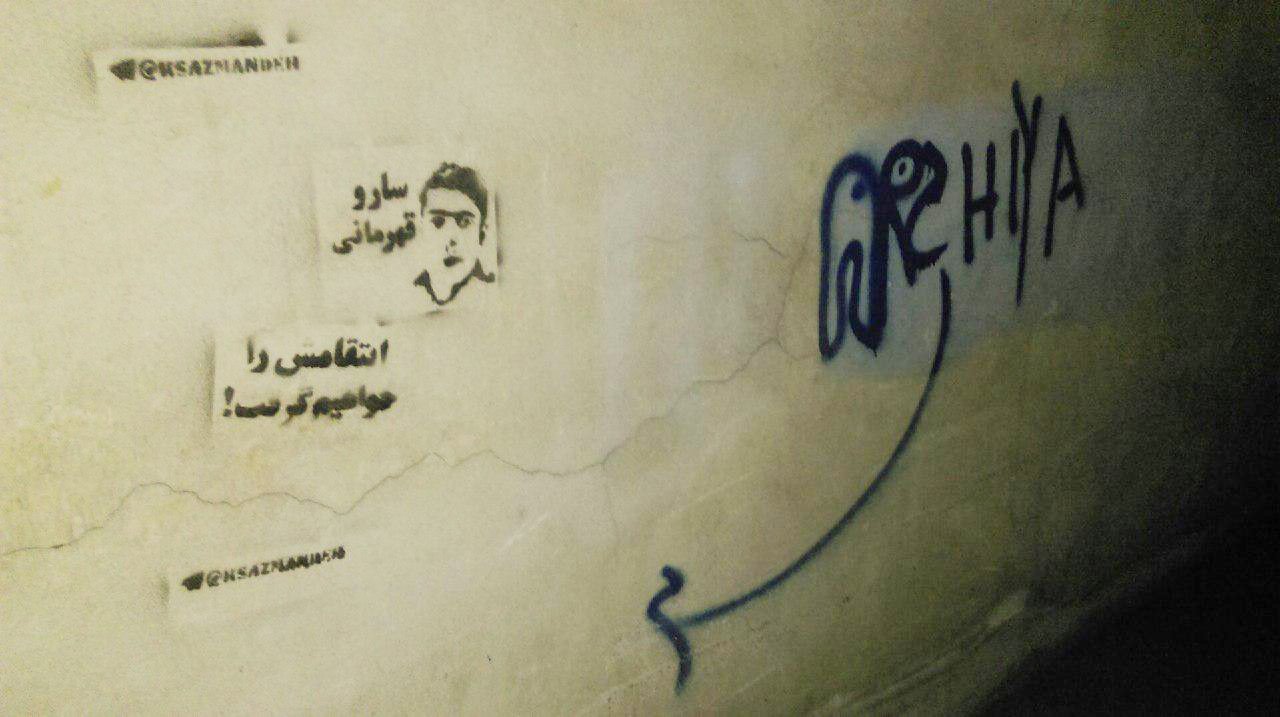 @KSAZMANDEH
سارو
قهرمانی
انتقامش را
خواهیم گرفت!
@KSAZMANDEH
HIYA